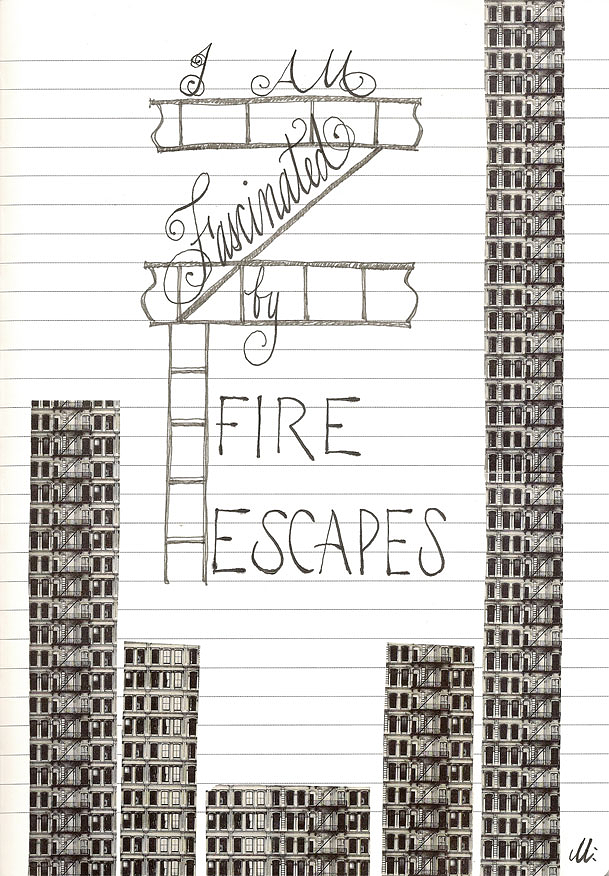 I AM
Fascinated
by
FIRE
ESCAPES